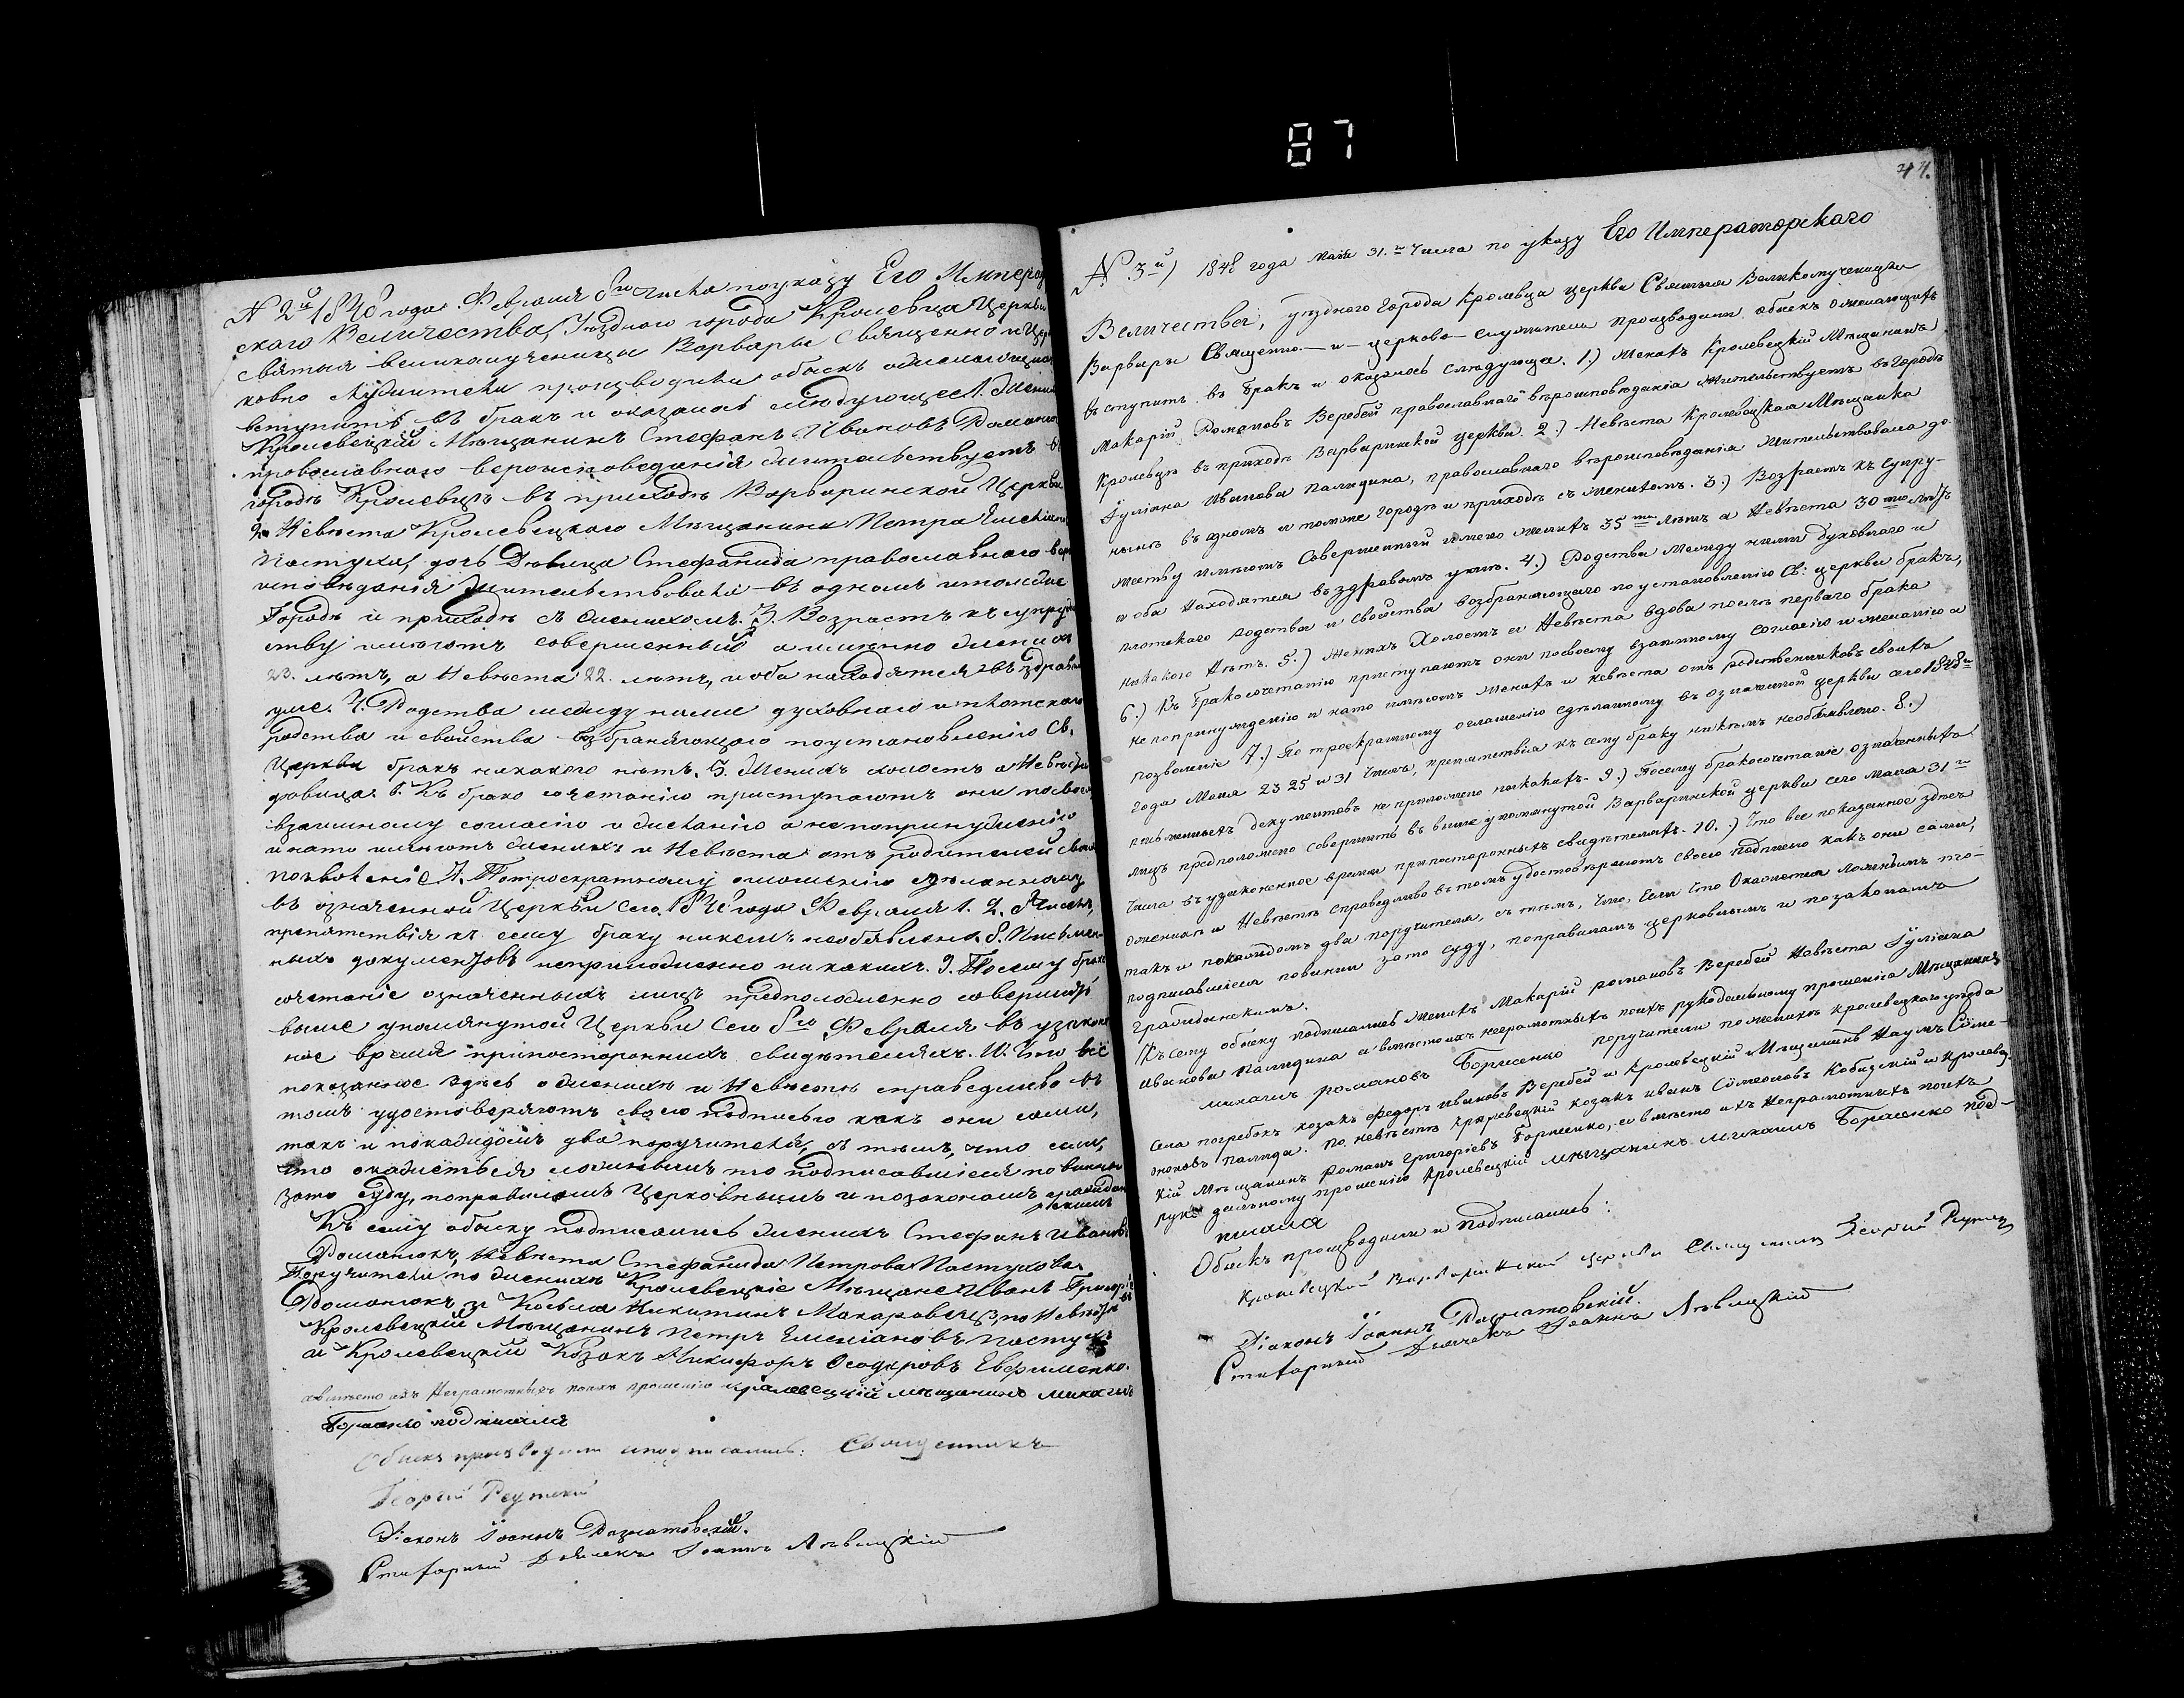 87
44.
N 2й 1848 года Февраля 8го числа по указу Его Император
скаго Величества, Уезднаго города Кролевца Церкви
святыя великомученицы Варвары Священно и Цер
ковно служители производили обыскъ о желающихъ
вступить въ бракъ и оказалось слѣдующее 1. Женихъ
Кролевецкій Мѣщанинъ Стефанъ Ивановъ Доманюкъ
православнаго вероисповеданія жительствуетъ въ
городѣ Кролевцѣ въ приходѣ Варваринской Церкви.
2. Невѣста Кролевецкаго Мѣщанина Петра
Пастуха, дочь Дѣвица Стефанида православнаго веро
исповѣданія жительствовала въ одномъ и томъ же
Городѣ и приходѣ съ женихомъ. 3. Возрастъ къ супруже
ству имеютъ совершенный а именно женихъ
23. лѣтъ, а Невѣста 22. лѣтъ, и оба находятся въ здравомъ
уме. 4. Родства между ними духовнаго и плотскаго
родства и свойства возбраняющаго по установленію Св.
Церкви бракъ никакого нѣтъ. 5. Женихъ холостъ а Невѣста
дѣвица. 6. Къ брако сочетанію приступаютъ они по своему
взаимному согласію и желанію а не по принужденію
и на то имѣютъ женихъ и Невѣста отъ родителей своихъ
позволеніе 7. По троекратному оглашенію сдѣланному
въ означенной Церкви сего 1848 года Февраля 1. 2. 8 чиселъ,
препятствія къ сему браку никемъ необъявлено. 8. Письмен-
ныхъ документовъ неприложенно никакихъ. 9. Посему брако
сочетаніе означенныхъ лицъ предположенно совершить
выше упомянутой Церкви сего 8го Февраля въ узаконе
ное время при постороннихъ свидѣтеляхъ. 10. Что всё
показанное здѣсь о женихѣ и Невѣстѣ справедливо въ
томъ удостоверяютъ своею подписью какъ они сами,
такъ и по каждомъ два поручителя, съ тѣмъ, что если,
что окажется ложнымъ то подписавшіеся повинны
за то суду, по правиламъ Церковнымъ и по законамъ граждан
скимъ
Къ сему обыску подписались женихъ Стефанъ Ивановъ
Доманюкъ, Невѣста Стефанида Петрова Пастухова.
Поручители по женихѣ Кролевецкіе Мѣщане Иванъ Григорі
Доманюкъ и Косьма Никитинъ Макаровецъ, по Невѣстѣ
Кролевецкій Мѣщанинъ Петръ Емеліановъ Пастухъ
и Кролевецкій Козакъ Никифоръ Ѳеодоровъ Евфименко.
а вместо ихъ Неграмотныхъ поихъ прошенію кролевецкій мѣщанинъ михаилъ
Борисенко подписался
Обыскъ производили и подписались: Священникъ
Георгій Реутскій
Діаконъ Іоаннъ
Стихарный Дьячекъ Іоаннъ Лѣвицкій
N 3й) 1848 года Маія 31.го Числа по указу Его Императорскаго
Величества, уѣзднаго города Кролевца церкви Святыя Великомученицы
Варвары Священно- и -церково- служители производили обыскъ о желающихъ
вступить въ бракъ и оказалось слѣдующе. 1.) Женихъ Кролевецкій Мѣщанинъ
Макарій Романовъ Веребей православнаго вѣроисповѣданія жительствуетъ въ городѣ
Кролевцѣ въ приходѣ Варваринской церкви. 2.) Невѣста Кролевецкая Мѣщанка
Іуліяна Иванова Палядина, православнаго вѣроисповѣданія жительствовала до
нынѣ въ одномъ и томже городѣ и приходѣ съ женихомъ. 3.) Возрастъ къ супру-
жеству имѣютъ Совершенный имено женихъ 35ти лѣтъ а Невѣста 30ти лѣтъ
и оба находятся въ здравомъ умѣ. 4.) Родства между ними духовнаго и
плотскаго родства и свойства возбраняющаго по установленію Св: церкви бракъ,
никакого нѣтъ. 5.) Женихъ Холостъ а Невѣста вдова послѣ перваго брака
6.) Къ бракосочетанію приступаютъ они по своему взаимному согласію и желанію а
не по принужденію и на то имѣютъ женихъ и невѣста отъ родственниковъ своихъ
позволеніе 7.) По троекратному оглашенію сдѣланному въ означенной церкви сего 1848го
года Маия 23 25 и 31 Числъ, препятствія къ сему браку никѣмъ необъявлено. 8.)
письменныхъ документовъ не приложено никакихъ. 9.) Посему бракосочетаніе означенныхъ
лицъ предположено совершить въ выше упомянутой Варваринской церкви сего Маия 31го
Числа въ узаконенное время при посторонныхъ свидѣтеляхъ. 10.) Что все показанное здѣсь
о женихѣ и Невѣстѣ справедливо въ томъ удостовѣряютъ своею подписю какъ они сами,
такъ и по каждомъ два поручителя, съ тѣмъ, Что, Если Что Окажется ложнымъ то-
подписавшіеся повинны за то суду, по правиламъ церковнымъ и по законамъ
Гражданскимъ.
Къ сему обыску подписались Женихъ Макарій романовъ Веребей Навѣста Іуліяна
Иванова Палядина а вместо ихъ неграмотныхъ поихъ рукодаельному прошенію Мѣщанинъ
михаилъ романовъ Борисенко поручители по женихѣ кролевецкаго уѣзда
села погребокъ козакъ федоръ ивановъ Веребей и Кролевецкій Мѣщанинъ Наумъ Симе-
оновъ Паляда. По невѣстѣ кролевецкій козакъ иванъ Симеоновъ Кобизскій и Кролевец
кій Мѣщанинъ романъ Григоріевъ Борисенко, а вмѣсто ихъ Неграмотныхъ поихъ
руко дательному прошенію Кролевецкій мѣщанинъ михаилъ Борисенко под-
писался
Обыскъ производили и подписались:
Кролевецкой Варваринской церкви Священникъ Георгій Реутскій
Діаконъ Іоаннъ
Стихарный Дьячекъ Іоаннъ Лѣвицкій